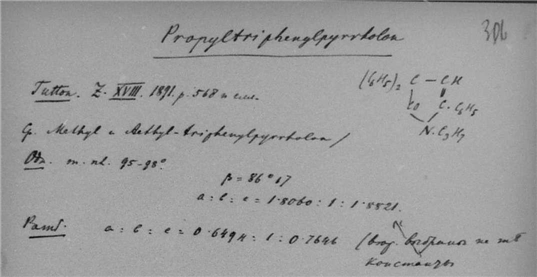 306
Propyltriphenylpyrrholon
Tutton. Z. XVIII. 1891. p. 568 и след.
(C6H5)2 C — CH
CO C. C6H5
N. C3H7
Ср. Methyl и Aethyl-triphenylpyrrholon /
m. пл. 95-98°.
β = 86°17
a : b : c = 1.8060 : 1 : 1.8821.
a : b : c = 0.6494 : 1 : 0.7646
константы